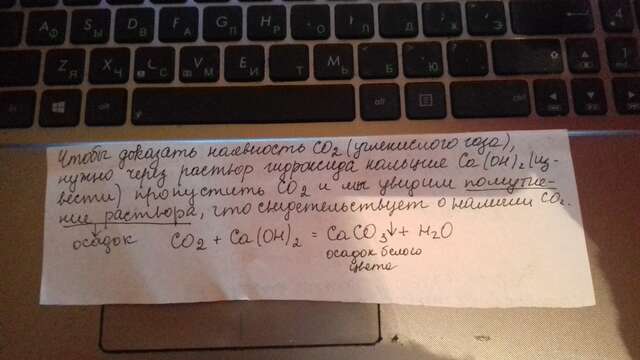 Чтобы доказать наявность CO₂ (углекислого газа),
нужно через раствор гидроксида кальция Ca(OH)₂ (из-
вести) пропустить CO₂ и мы увидим помутне-
ние раствора, что свидетельствует о наличии CO₂.
осадок CO₂ + Ca(OH)₂ = CaCO₃↓ + H₂O
осадок белого
цвета